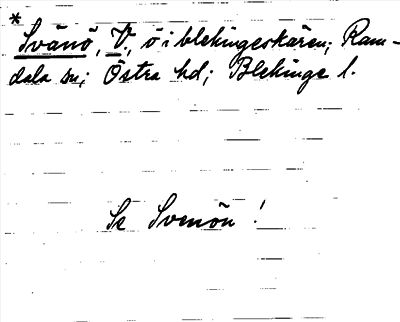 *
Svänö, V., ö i blekingeskären; Ram-
dala sn; Östra hd; Blekinge l.
Se Svenön!